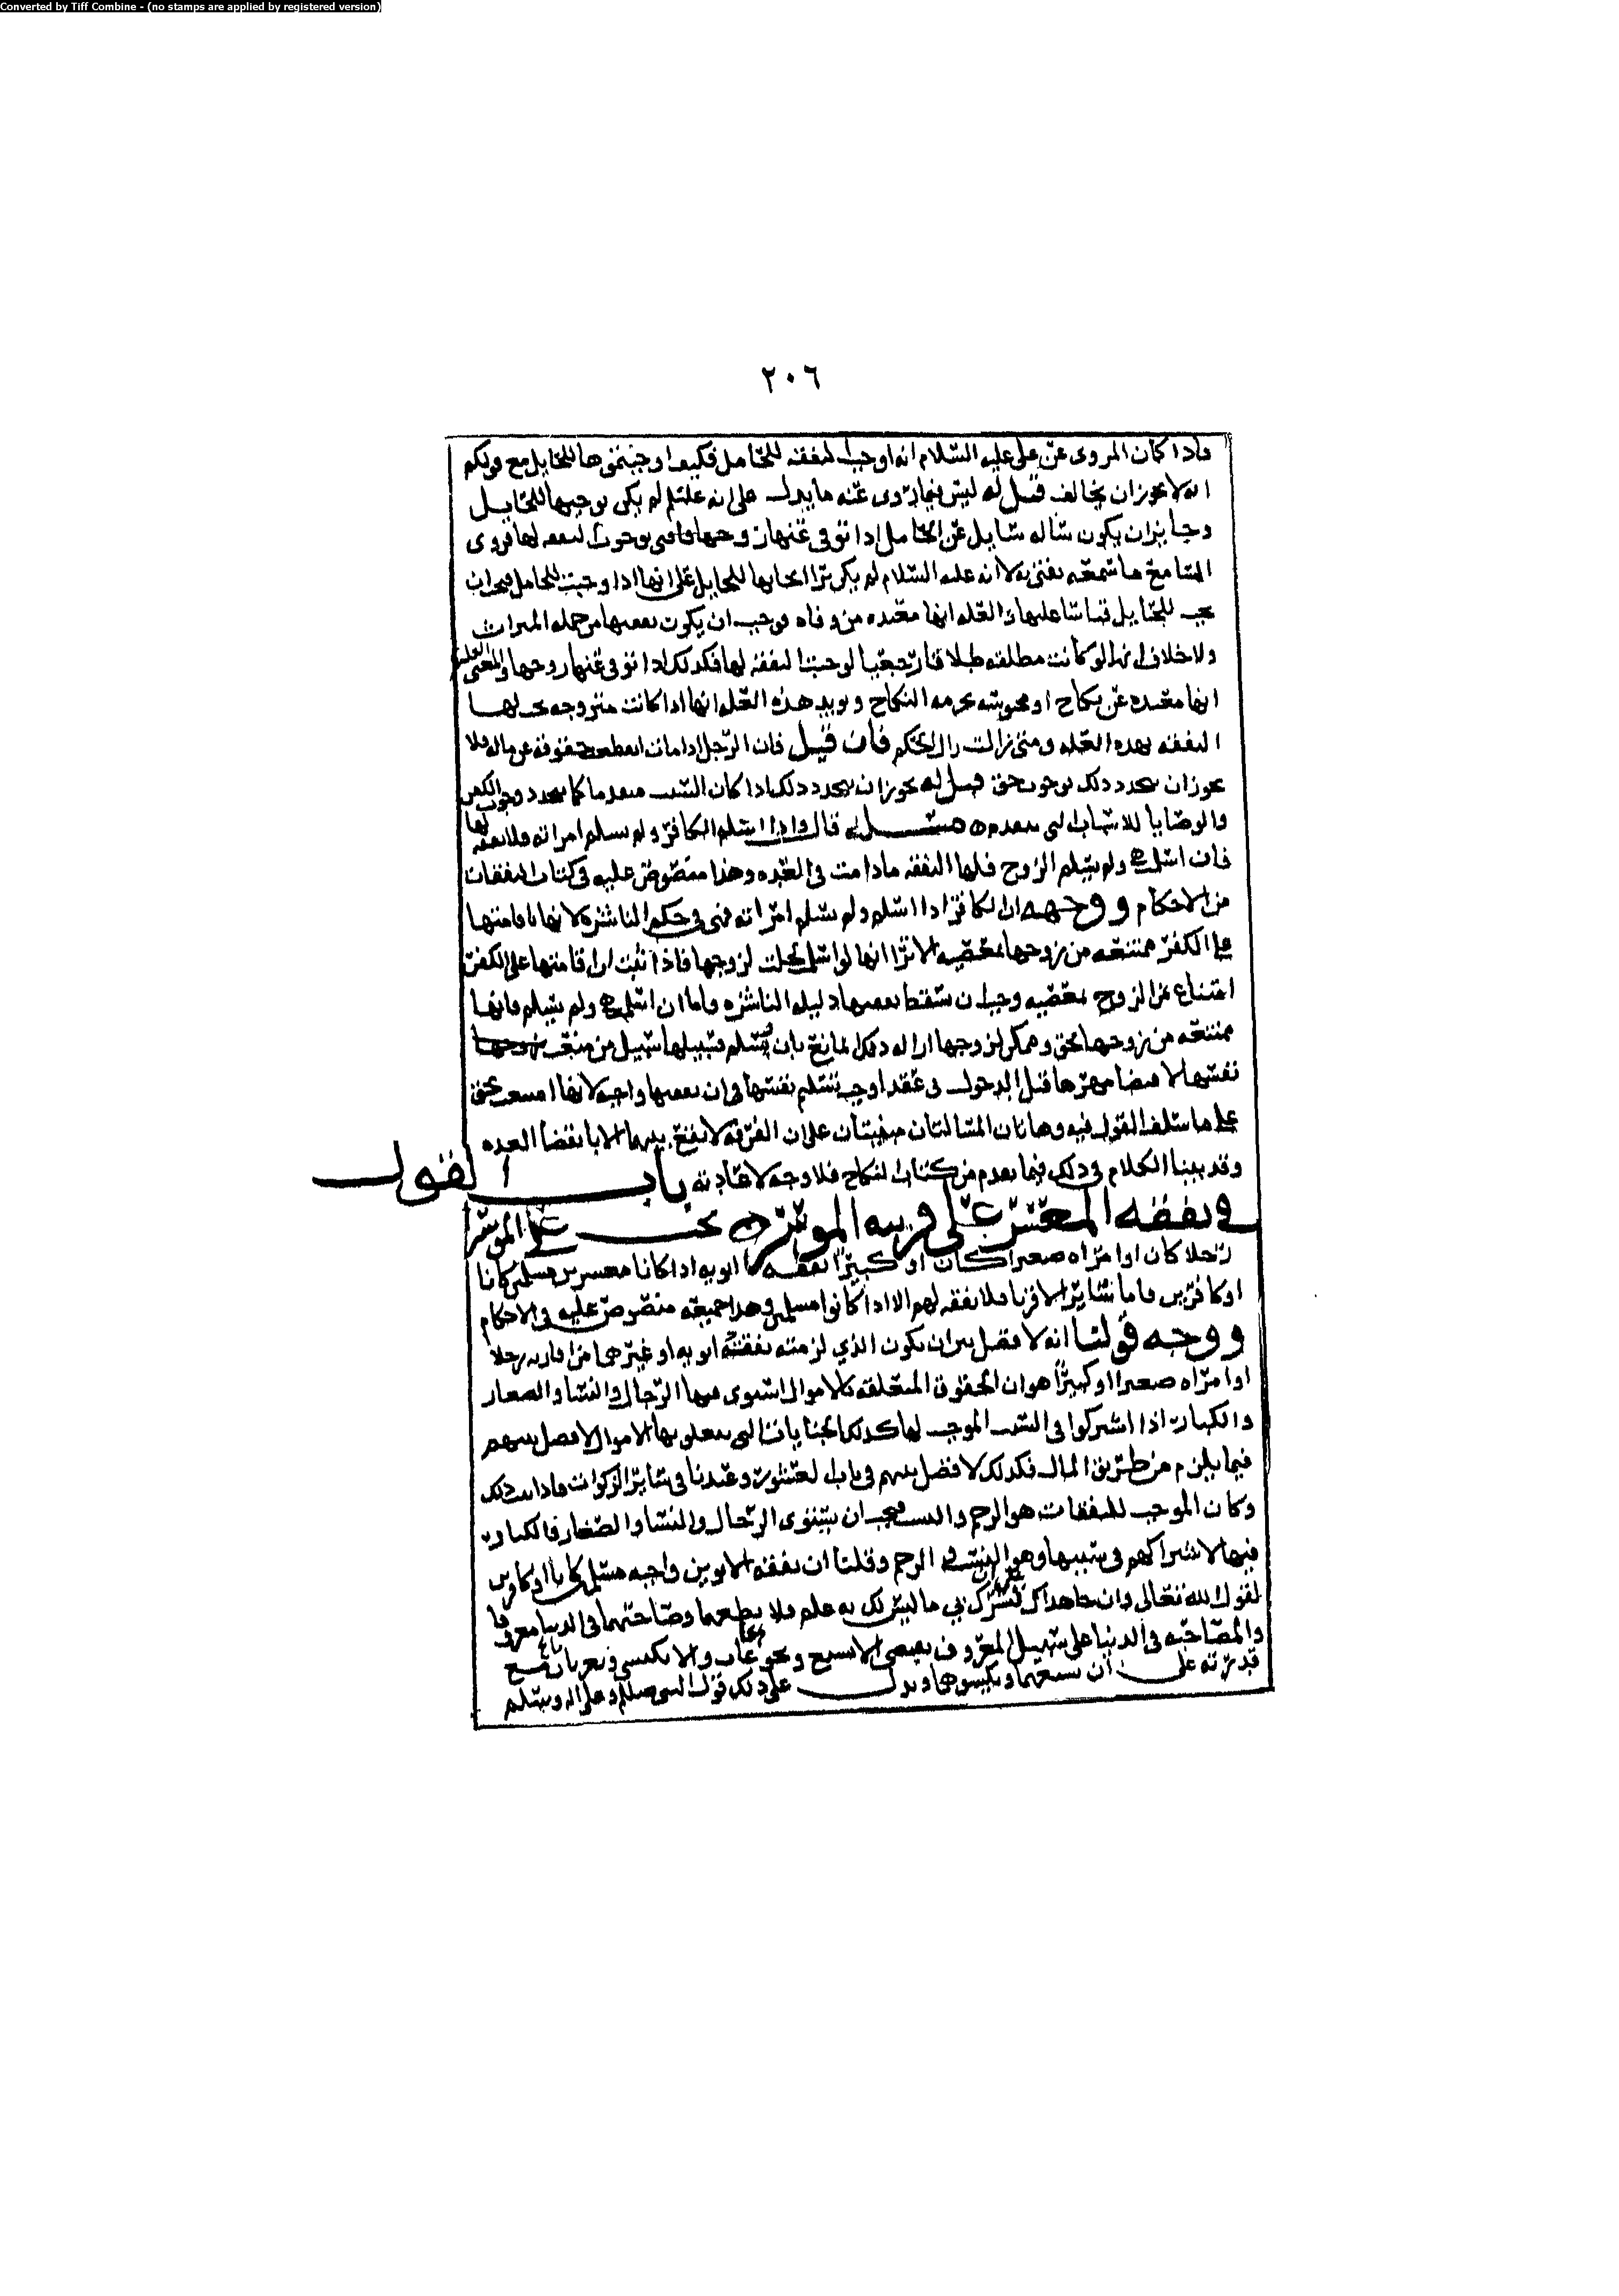 Converted by Tiff Combine - (no stamps are applied by registered version)
٢٠٦
فاذا كان المروى عن على عليه السلام انه اوجب النفقه للحامل فكيف اوجبتموها للحايل مع قولكم
انه لا يجوز ان يخالف قيل له ليس فيما روى عنه ما يدل على انه علسلم لم يكن يوجبها للحايل
وجايز ان يكون ساله سايل عن الحامل اذا توفى عنها زوجها فافتى بوجوب النفقه لها فروى
السامع ما سمعه يفتى به لا انه عليه السلام لم يكن يرا ايجابها للحايل على انها اذا وجبت للحامل فيجب ان
يجب للحايل قياسا عليها والعله انها معتده من وفاه فوجب ان يكون نفقتها من جمله الميراث
ولا خلاف انها لو كانت مطلقه طلاقا رجعيا لوجبت النفقه لها فكذلك اذا توفى عنها زوجها والمعنى
انها معتده عن نكاح او محبوسه بحرمه النكاح ويويد هذه العله انها اذا كانت متزوجه يجب لها
النفقه بهذه العله ومتى زالت زال الحكم فان قيل فان الرجل اذا مات انقطعت حقوقه عن ماله فلا
يجوز ان يتجدد ذلك بوجوب حق قيل له يجوز ان يتجدد ذلك اذا كان السبب متقدما كما يتجدد وجوب الكفن
والوصايا للاسباب التى تتقدم مسئله قال واذا اسلم الكافر ولم تسلم امراته فلا نفقه لها
فان اسلمت ولم يسلم الزوج فلها النفقه مادامت فى العده وهذا منصوص عليه فى كتاب النفقات
من الاحكام ووجهه ان الكافر اذا اسلم ولم تسلم امراته فهى فى حكم الناشزه لانها باقامتها
على الكفر ممتنعه من زوجها بمعصيه الا ترا انها لو اسلمت لحلت لزوجها فاذا ثبت ان اقامتها على الكفر
امتناع من الزوج بمعصيه وجب ان تسقط نفقتها دليله الناشزه واما ان اسلمت ولم يسلم فانها
ممتنعه من زوجها بحق ويمكن لزوجها ازاله ذلك المانع بان يسلم فسبيلها سبيل من منعت زوجها
نفسها لاقتضا مهرها قبل الدخول فى عقد اوجب تسليم نفسها فى ان نفقتها واجبه لانها امتنعت بحق
على ما سلف القول فيه وهاتان المسالتان مبنيتان على ان الفرقه لا تقع بينهما الا بانقضا العده
وقد بينا الكلام فى ذلك فيما تقدم من كتاب النكاح فلا وجه لاعادته باب القول
فى نفقه المعسر على قريبه الموسر يجب على الموسر
رجلا كان او امراه صغيرا كان او كبيرا نفقه ابويه اذا كانا معسرين مسلمين كانا
او كافرين فاما سائر الاقربا فلا نفقه لهم الا اذا كانوا مسلمين وهذا جميعه منصوص عليه فى الاحكام
ووجه قولنا انه لا فصل بين ان يكون الذي لزمته نفقته ابويه او غيرهما من اقاربه رجلا
او امراه صغيرا او كبيرًا هو ان الحقوق المتعلقه بالاموال استوى فيها الرجال والنسا والصغار
والكبار اذا اشتركوا فى السبب الموجب لها كذلك الجنايات التى يتعلق بها الاموال لا فصل بينهم
فيما يلزم من طريق المال فكذلك لا فضل بينهم فى باب العشور وعندنا فى سائر الزكوات فاذا ثبت ذلك
وكان الموجب للنفقات هو الرحم والنسب فيجب ان يستوى الرجال والنسا والصغار والكبار
فيها لاشتراكهم فى سببها وهو النسب فى الرحم وقلنا ان نفقه الابوين واجبه مسلمين كانا او كافرين
لقول الله تعالى وان جاهداك على ان تشرك بى ما ليس لك به علم فلا تطعهما وصاحبهما فى الدنيا معروفا
والمصاحبه فى الدنيا على سبيل المعروف يقتضى الا يشبع ويجوعان والا يكتسى ويعريان مع
قدرته على ان يشبعهما ويكسوهما ويدل على ذلك قول النبى صلى الله وعلى اله وسلم